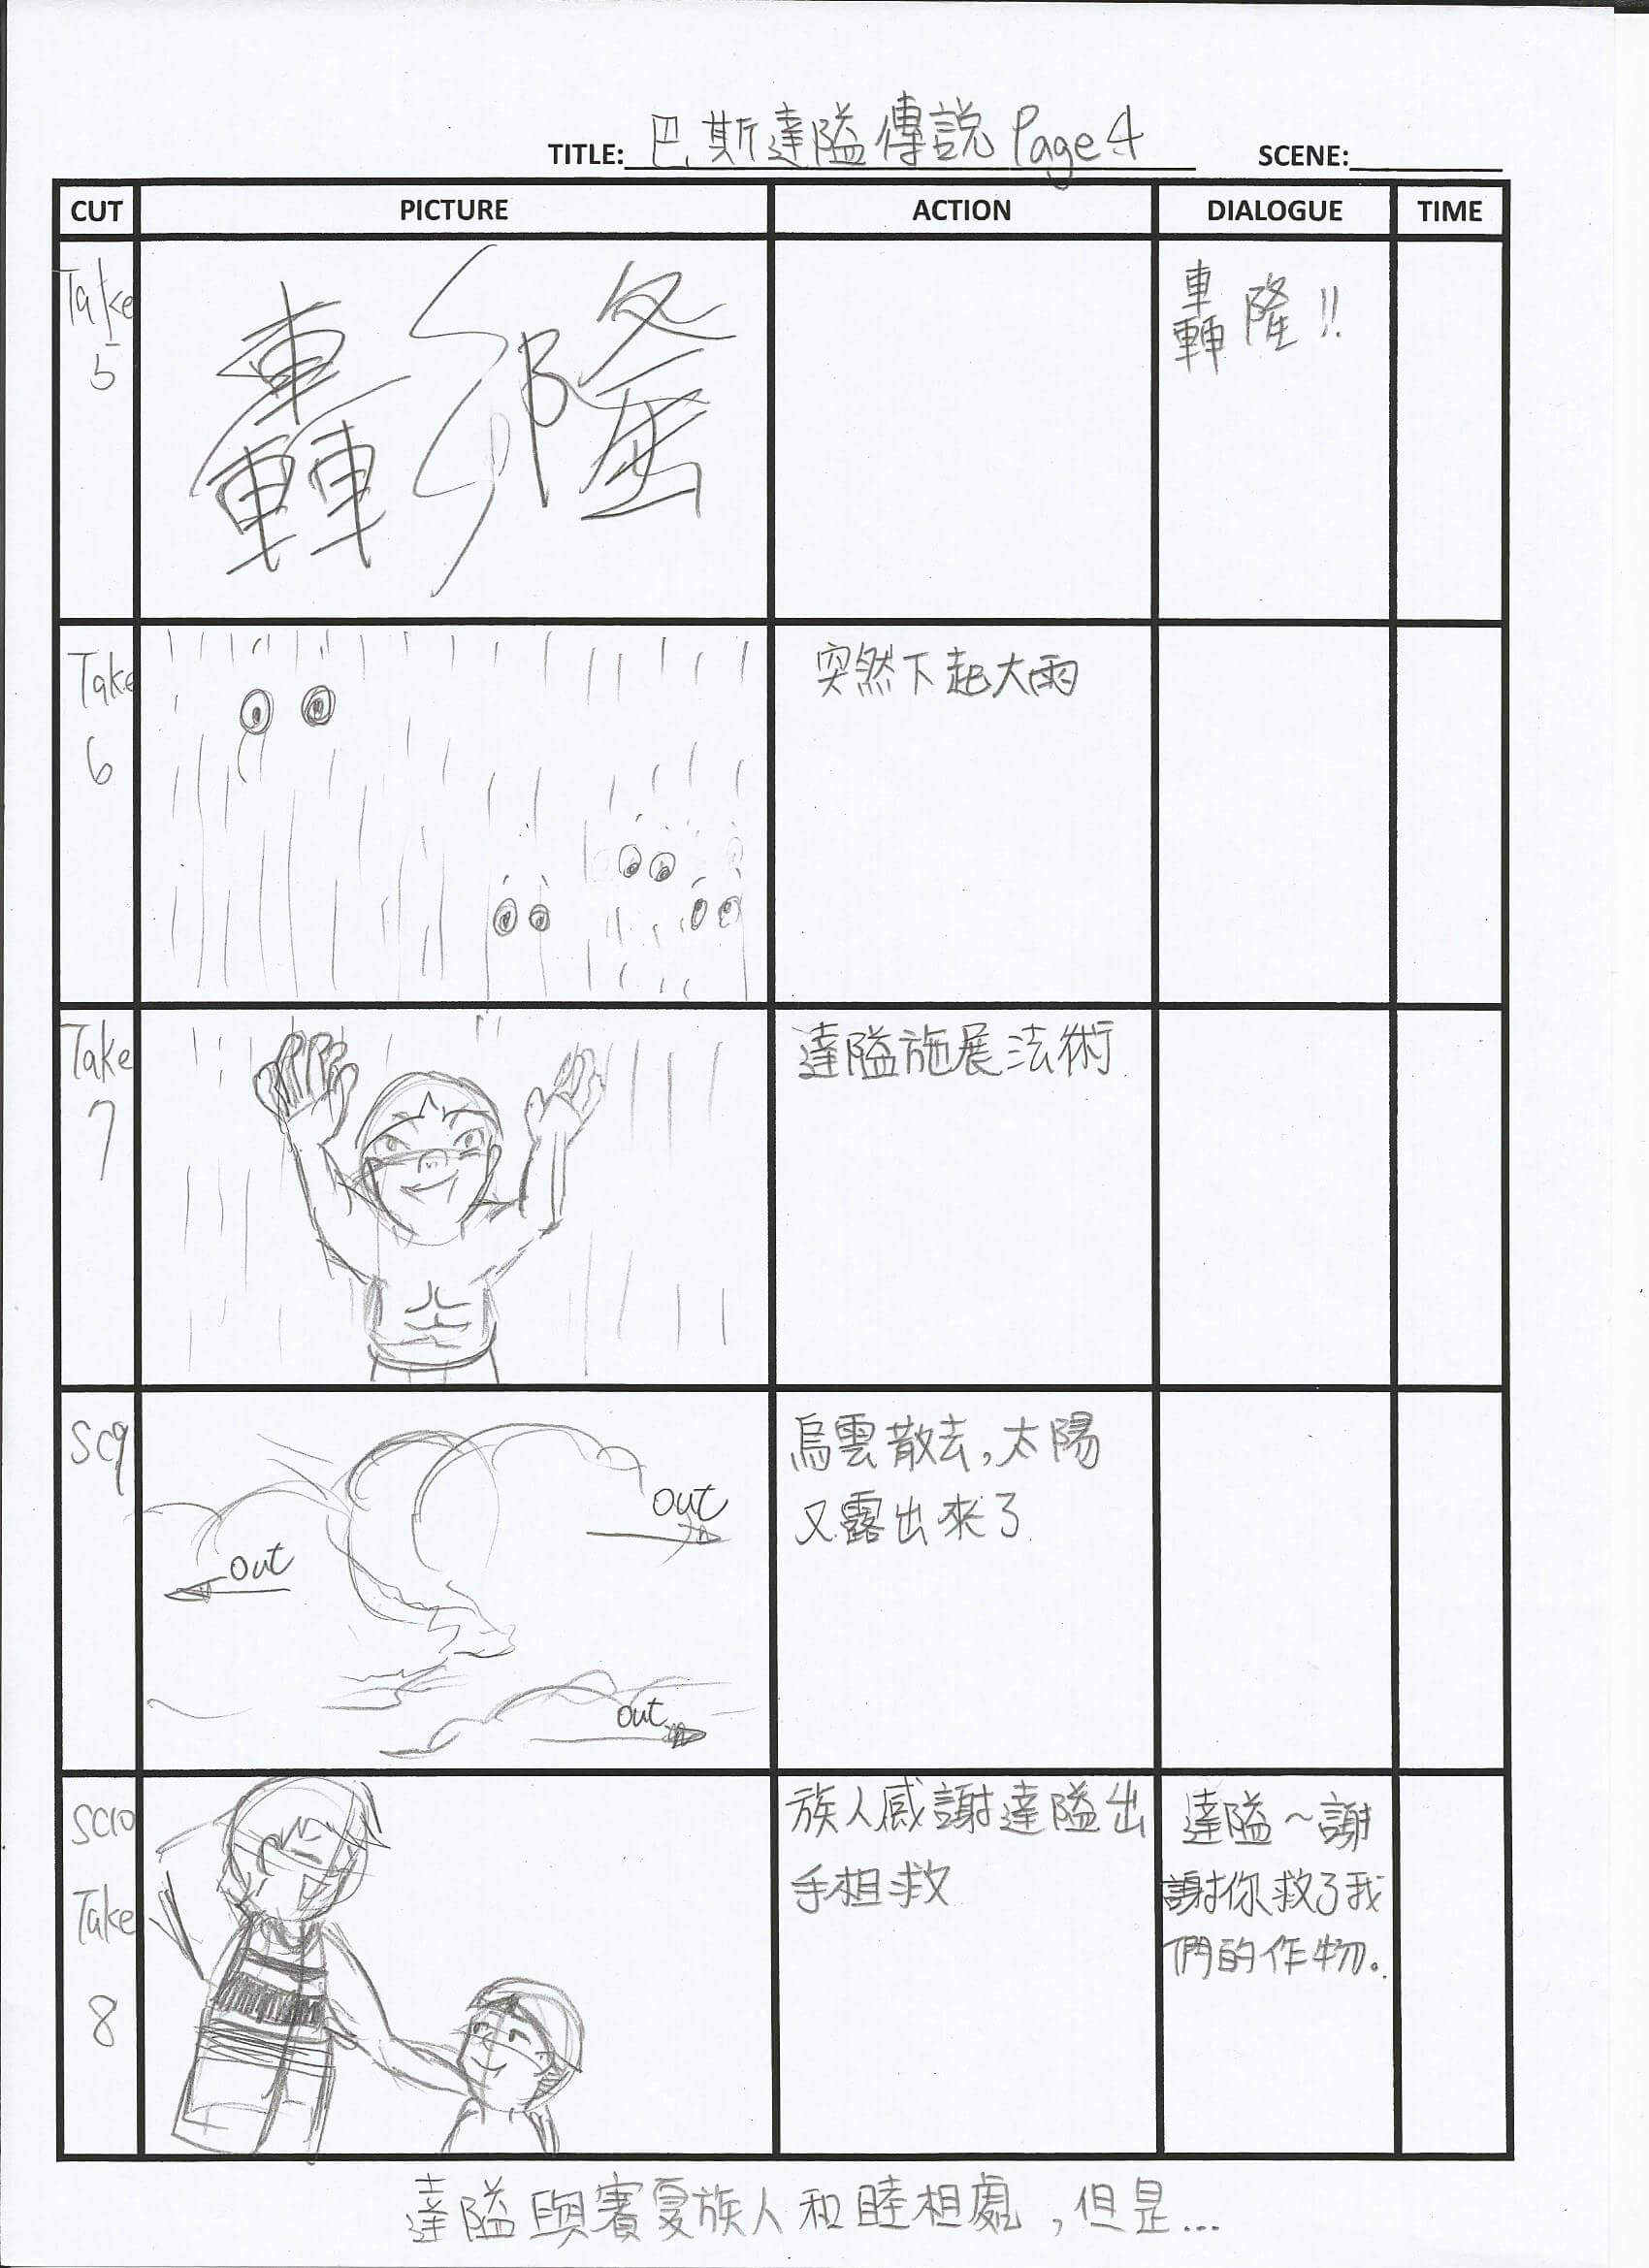 TITLE: 巴斯達隘傳說 Page 4 SCENE:
CUT PICTURE ACTION DIALOGUE TIME
Take
5
轟隆
轟隆!!
Take
6
突然下起大雨
Take
7
達隘施展法術
SC9
out
out
out
烏雲散去,太陽
又露出來了
SC10
Take
8
族人感謝達隘出
手相救
達隘~謝
謝你救了我
們的作物。
達隘與賽夏族人和睦相處,但是...